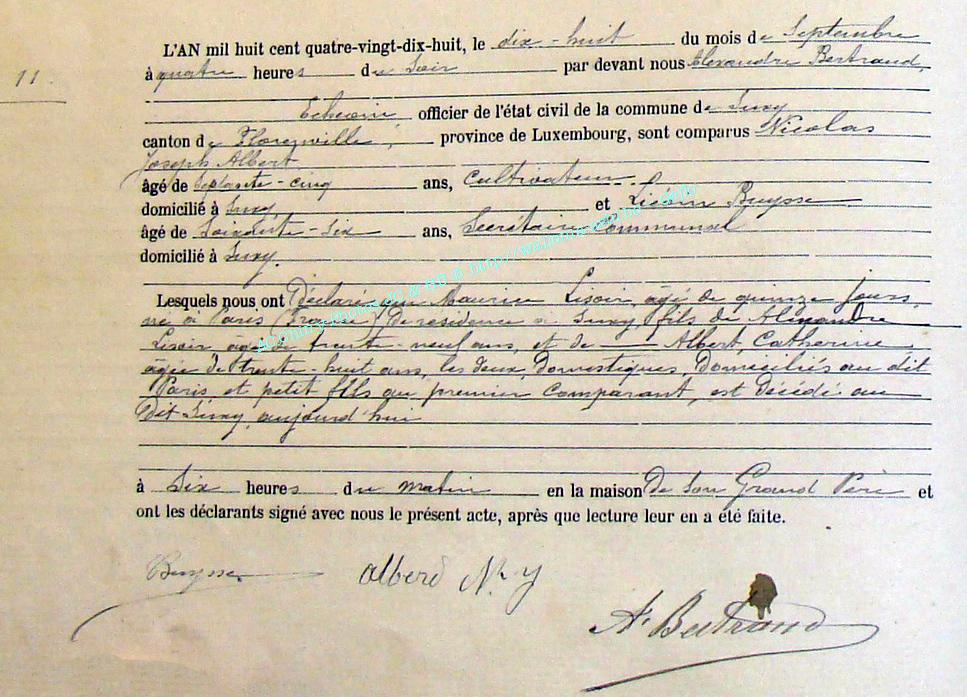 L'AN mil huit cent quatre-vingt-dix-huit, le dix-huit du mois de Septembre
11.
à quatre heures du Soir par devant nous Alexandre Bertrand,
Echevin, officier de l'état civil de la commune de Suxy
canton de Florenville, province de Luxembourg, sont comparus Nicolas
Joseph Albert
âgé de septante-cinq ans, Cultivateur
domicilié à Suxy, et Buysse
âgé de Soixante-Six ans, Secrétaire Communal
domicilié à Suxy.
Lesquels nous ont Déclaré que Maurice Lisoir, âgé de quinze jours,
né à Paris (France) De résidence à Suxy, fils de Alexandre
Lisoir, âgé de trente-neuf ans, et de Albert, Catherine
âgée de trente-huit ans, les deux Domestiques, Domiciliés au dit
Paris, et petit fils du premier Comparant, est Décédé au
Dit Suxy, aujourd'hui
à Six heures du matin en la maison De Son Grand Père et
ont les déclarants signé avec nous le présent acte, après que lecture leur en a été faite.
Buysse Albert N. J
A. Bertrand